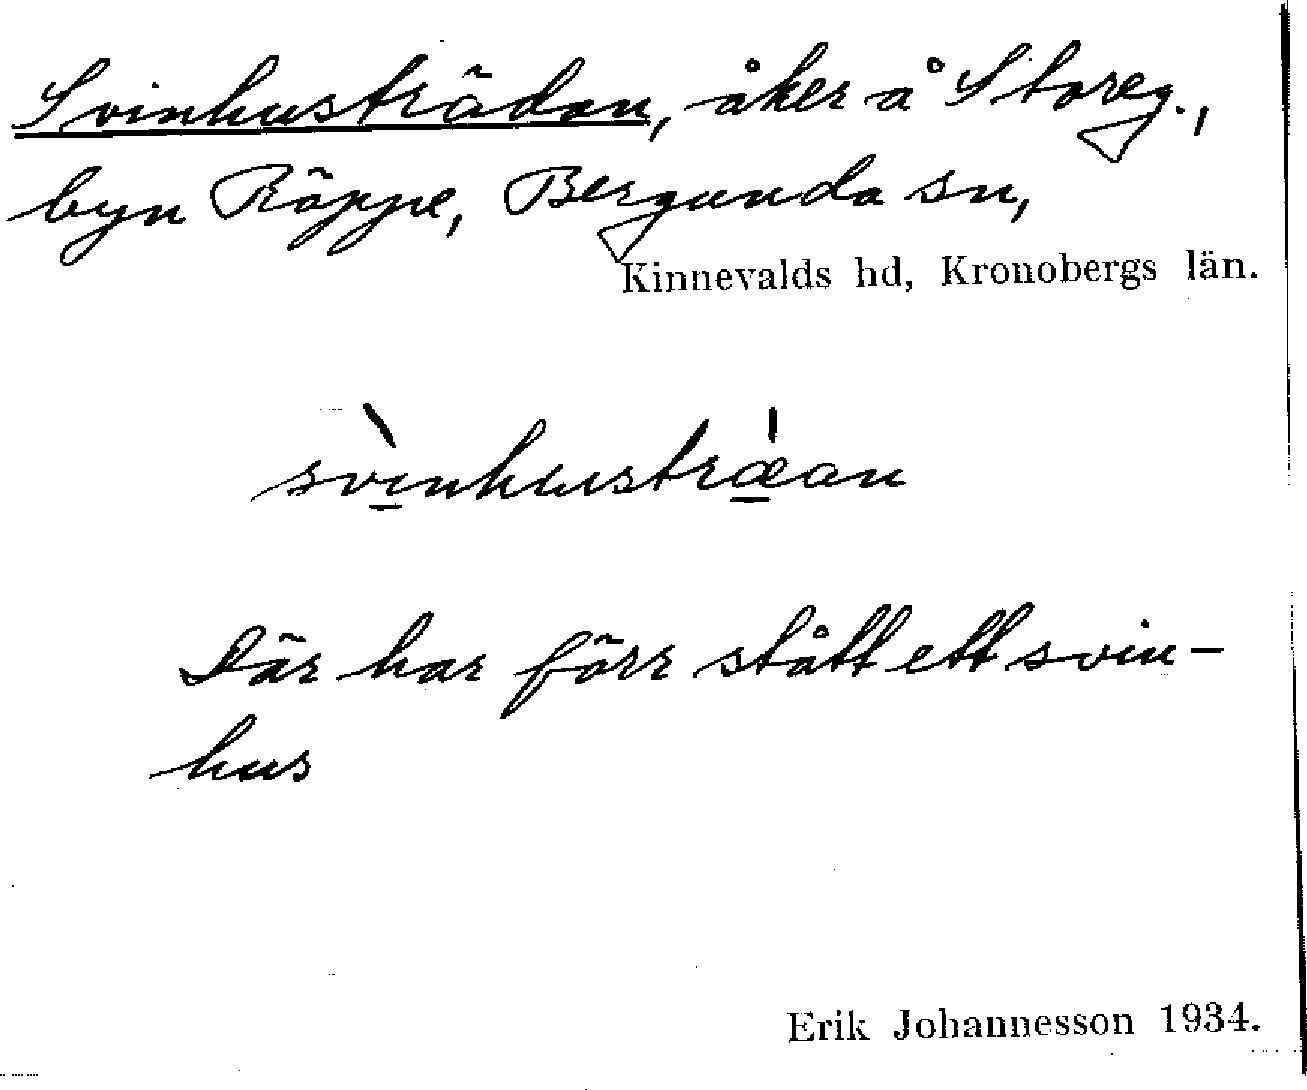 Svinhusträdan, åker å Storeg.,
byn Räppe, Bergunda sn,
Kinnevalds hd, Kronobergs län.
svinhustræan
Där har förr stått ett svin-
hus
Erik Johannesson 1934.